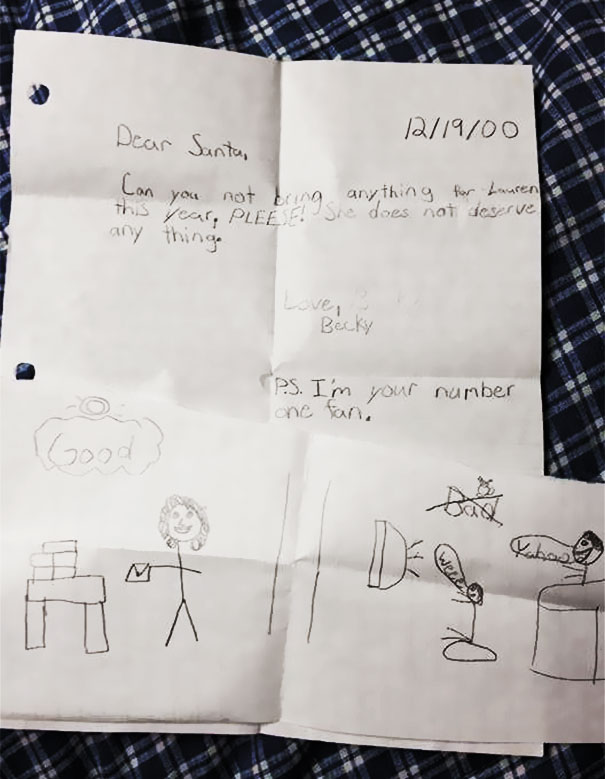 12/19/00
Dear Santa,
Can you not bring anything for Lauren
this year, PLEESE! She does not deserve
any thing.
Love,
Becky
P.S. I'm your number
one fan.
Good
Bad
weee
Yahoo